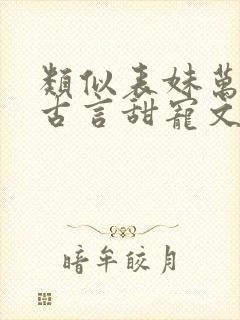 類似表妹萬
古言甜寵文
暗牟皎月